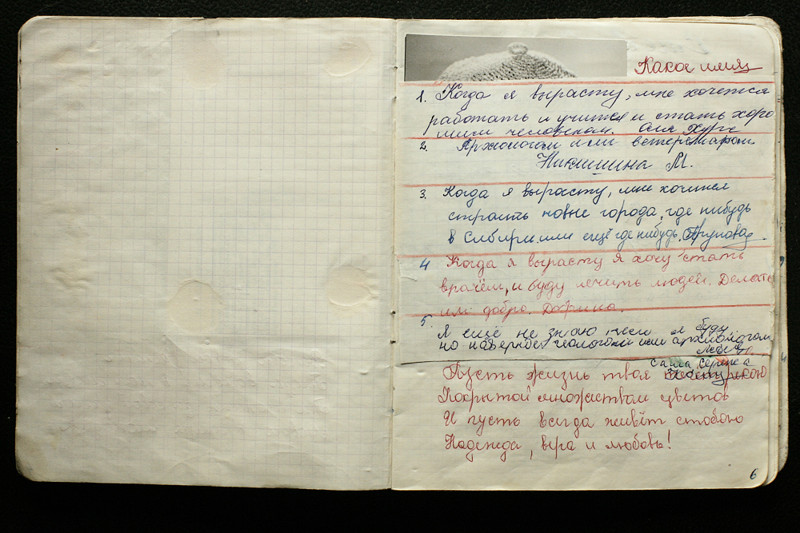 Какое имя
1. Когда я вырасту, мне хочется
работать и учится и стать хоро
шим человеком. Оля
2. Архиологом или ветеренаром
Никишина М.
3. Когда я вырасту, мне хочится
строить новые города, где нибудь
в Сибири или ещё где нибудь.
4 Когда я вырасту я хочу стать
врачём, и буду лечить людей. Делать
им добро.
5 Я ещё не знаю кем я буду,
но наверное геологом или археологом
Саша Сергеев
Пусть жизнь твоя
Покрытой множеством цветов
И пусть всегда живёт стобою
Надежда, вера и любовь!
6